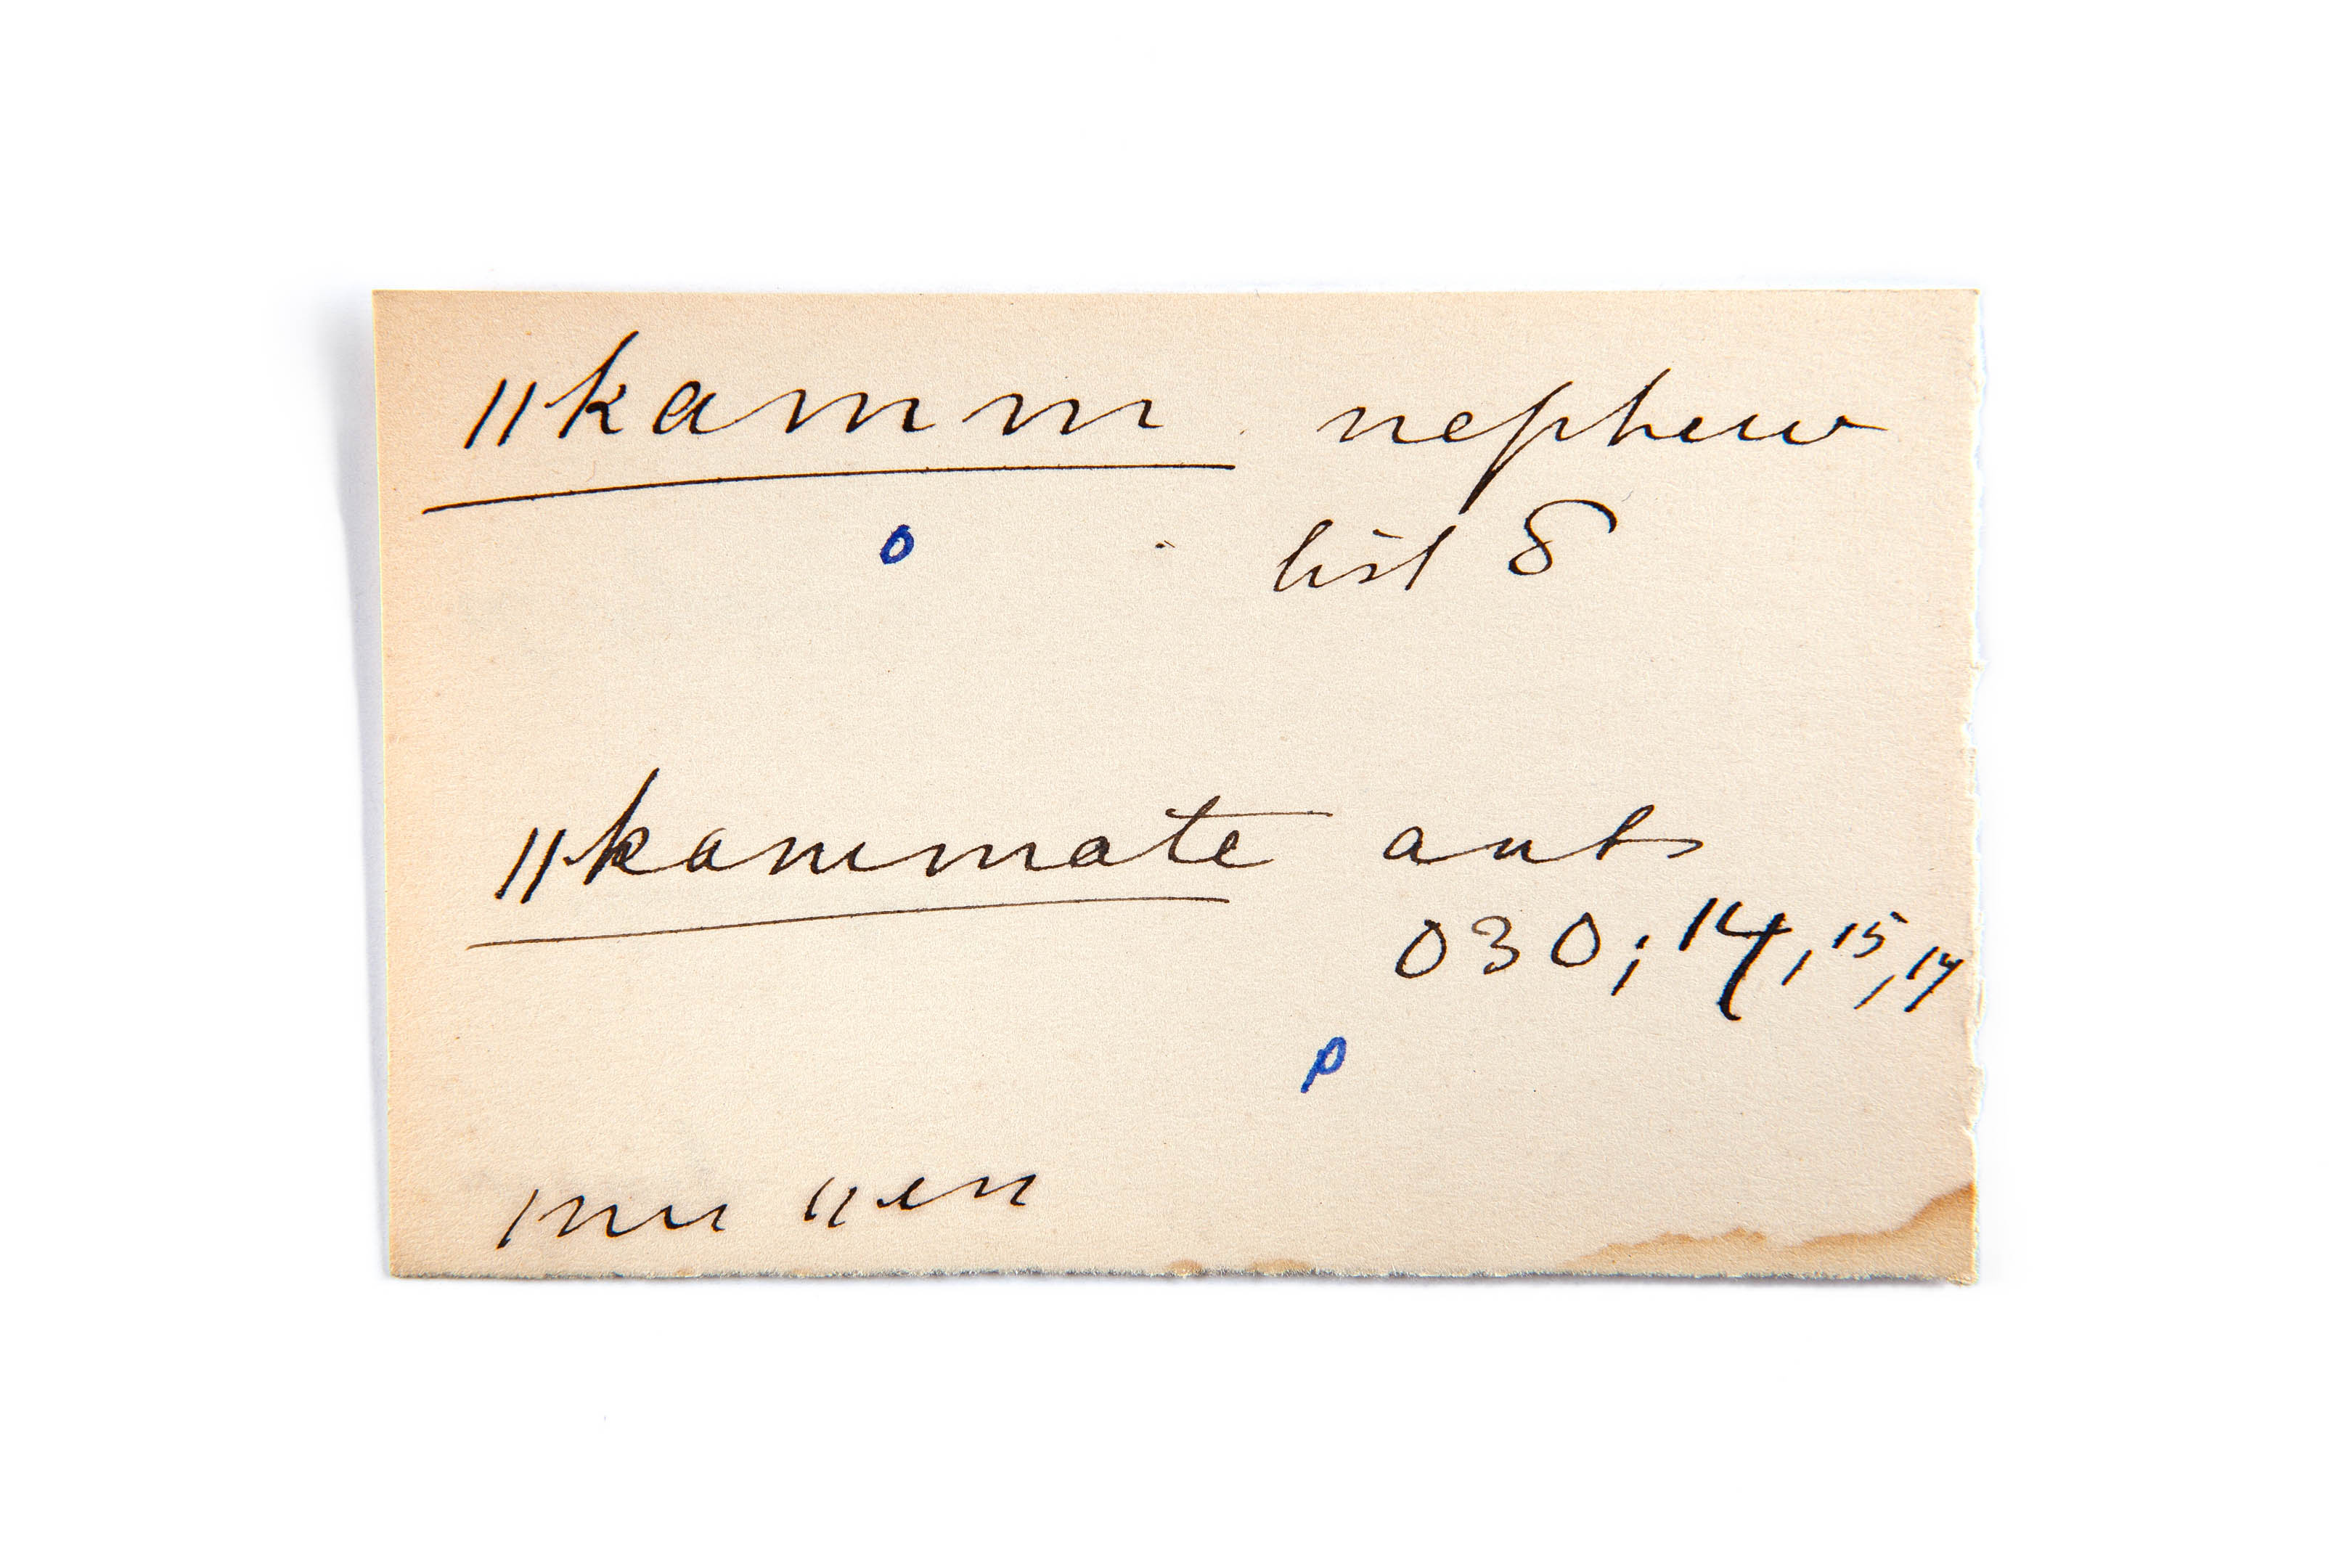 ||kamm nephew
o list 8
||kammate ants
030; 14, 15, 17
p
|nu ||en